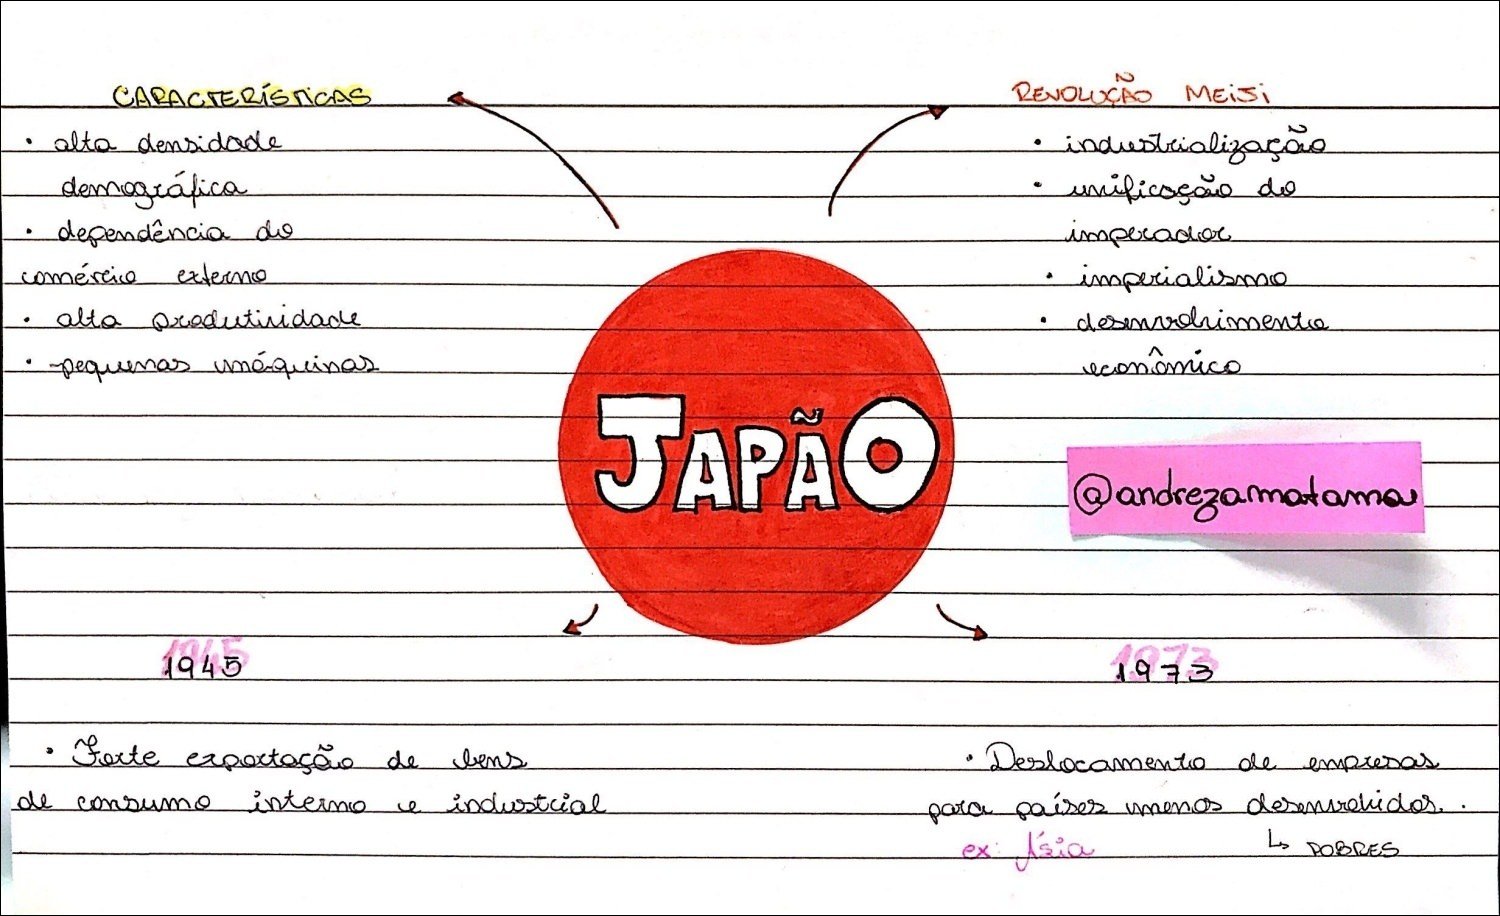 CARACTERÍSTICAS
• alta densidade
demográfica
• dependência do
comércio externo
• alta produtividade
• pequenas máquinas
REVOLUÇÃO MEIJI
• industrialização
• unificação do
imperador
• imperialismo
• desenvolvimento
econômico
JAPÃO
@andrezamatama
1945
• Forte exportação de bens
de consumo interno e industrial
1973
• Deslocamento de empresas
para países menos desenvolvidos.
ex: Ásia
↳ POBRES